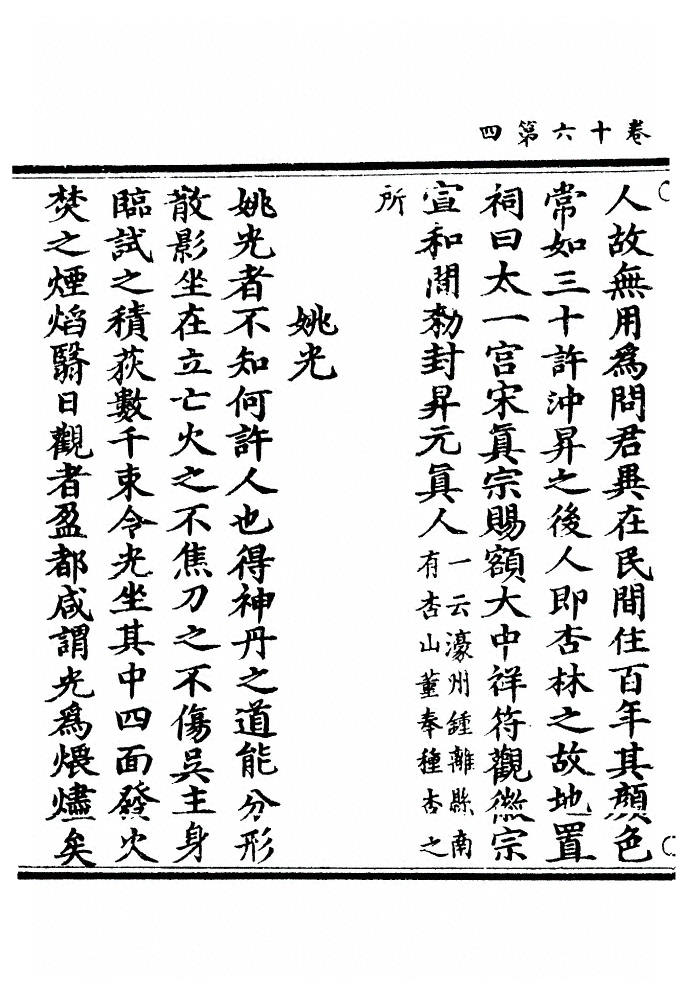 卷十六第四
人故無用爲問君異在民間住百年其顏色
常如三十許沖昇之後人即杏林之故地置
祠曰太一宮宋眞宗賜額大中祥符觀徽宗
宣和間勑封昇元眞人一云濠州鍾離縣南
有杏山董奉種杏之
所
姚光
姚光者不知何許人也得神丹之道能分形
散影坐在立亡火之不焦刀之不傷吳主身
臨試之積荻數千束令光坐其中四面發火
焚之煙焰翳日觀者盈都咸謂光爲煨燼矣